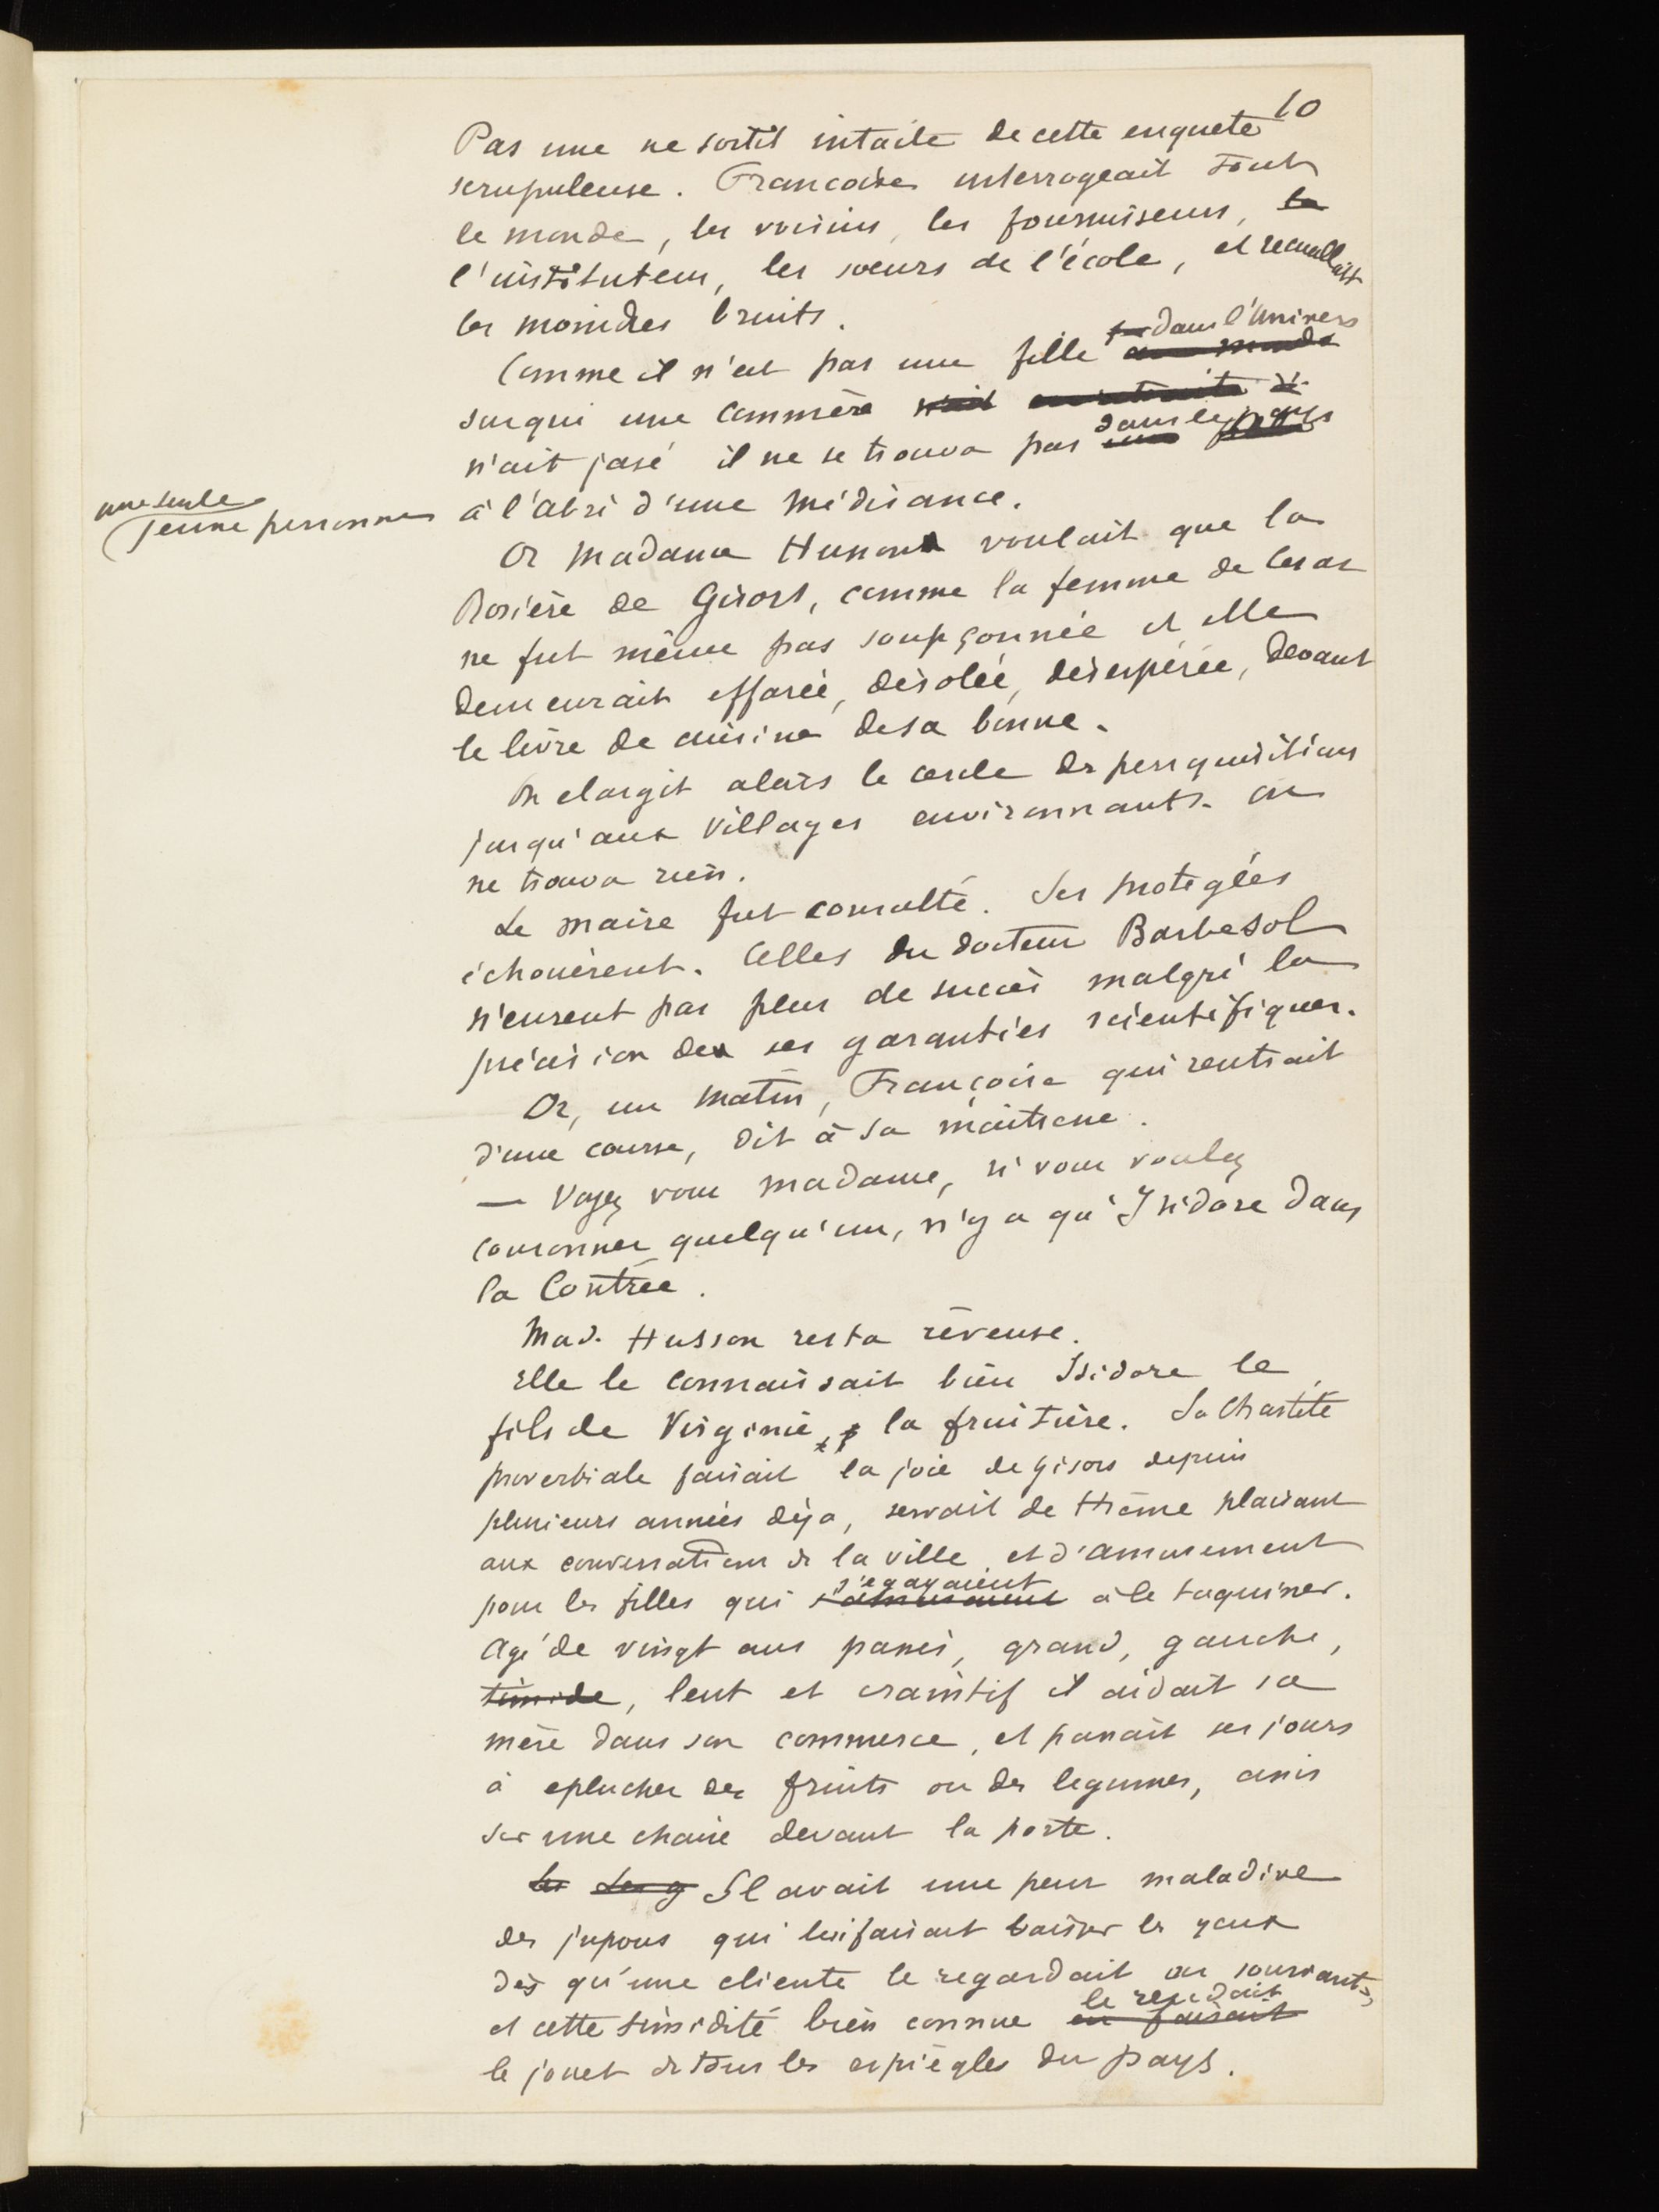 10
Pas une ne sortit intacte de cette enquete
scrupuleuse. Francoise interrogeait tout
le monde, les voisins, les fournisseurs, la
l'instituteur, les sœurs de l'école, et recueillait
les moindres bruits.
dans l'univers
Comme il n'est pas une fille au monde
sur qui une commère n'ait
dans le pays
n'ait jasé il ne se trouva pas
une seule
jeune personne
à l'abri d'une médisance.
Or Madame Husson voulait que la
Rosière de Gisors, comme la femme de Cesar
ne fut même pas soupçonnée et elle
demeurait effarée, désolée, désespérée, devant
le livre de cuisine de sa bonne.
On elargit alors le cercle des perquisitions
jusqu'aux villages environnants. on
ne trouva rien.
Le maire fut consulté. Ses protegées
échouèrent. Celles du docteur Barbesol
n'eurent pas plus de succès malgré la
précision de ses garanties scientifiques.
Or, un matin, Françoise qui rentrait
d'une course, dit à sa maitresse.
— Voyez vous madame, si vous voulez
couronner quelqu'un, n'y a qu'Isidore dans
la Contrée.
Mad. Husson resta rêveuse.
Elle le connaissait bien Isidore le
fils de Virginie, la fruitière. Sa Chasteté
proverbiale faisait la joie de Gisors depuis
plusieurs années déja, servait de thème plaisant
aux conversations de la ville et d'amusement
s'egayaient
pour les filles qui s'amusaient à le taquiner.
Agé de vingt ans passés, grand, gauche,
timide, lent et craintif il aidait sa
mère dans son commerce, et passait ses jours
à eplucher des fruits ou des legumes, assis
sur une chaise devant la porte.
Les Les g Il avait une peur maladive
des jupons qui lui faisait baisser les yeux
dès qu'une cliente le regardait en souriant,
le rendait
et cette timidité bien connue en faisait
le jouet de tous les espiègles du pays.